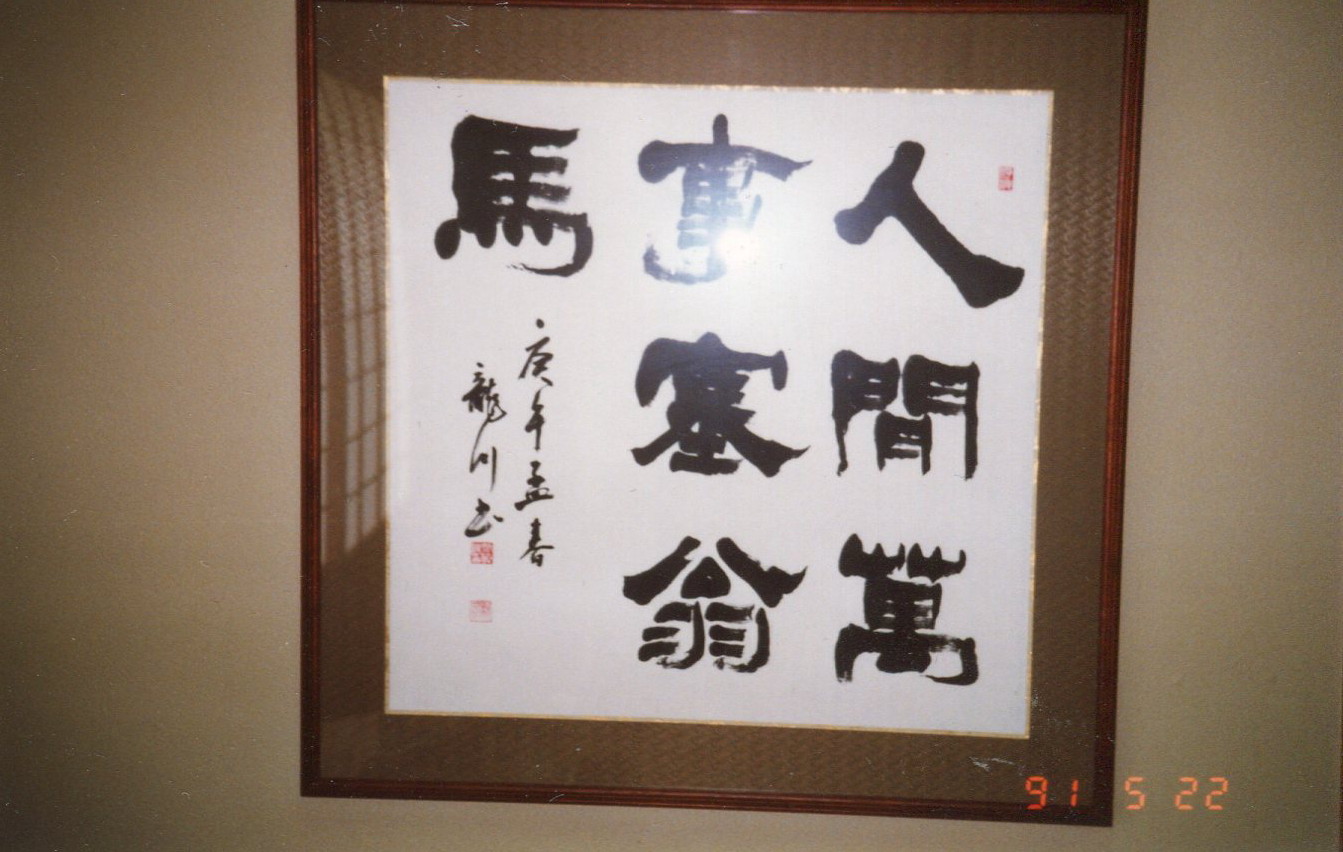 人間萬
事塞翁
馬
庚午孟春
龍川書
91 5 22